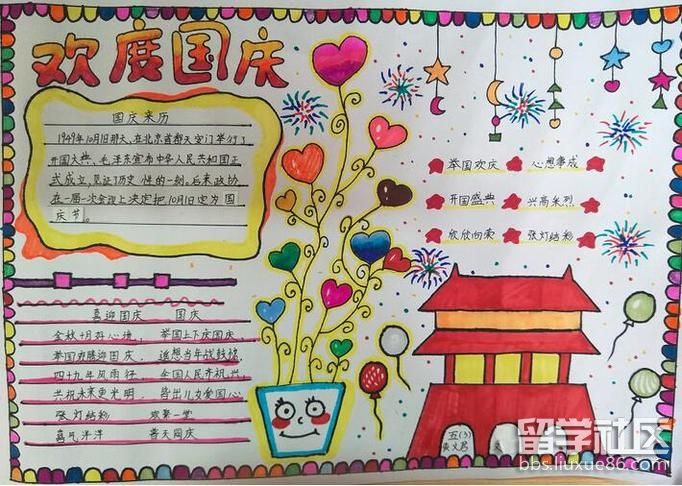 欢度国庆
国庆来历
1949年10月1日那天,在北京首都天安门举行了
开国大典,毛泽东宣布中华人民共和国正
式成立,见证了历史性的一刻。后来政协
在一届一次会议上决定把10月1定为国
庆节。
举国欢庆 心想事成
开国盛典 兴高采烈
欣欣向荣 张灯结彩
喜迎国庆 国庆
金秋十月好心境, 举国上下庆国庆
举国欢腾迎国庆, 遥想当年战鼓
四十九年风雨
全国人民齐祝
共祝未来更光明, 皆出儿女爱国心
张灯结彩 欢聚一堂
喜气洋洋 普天同庆
五(3)
留学社区
bbs.liuxue86.com